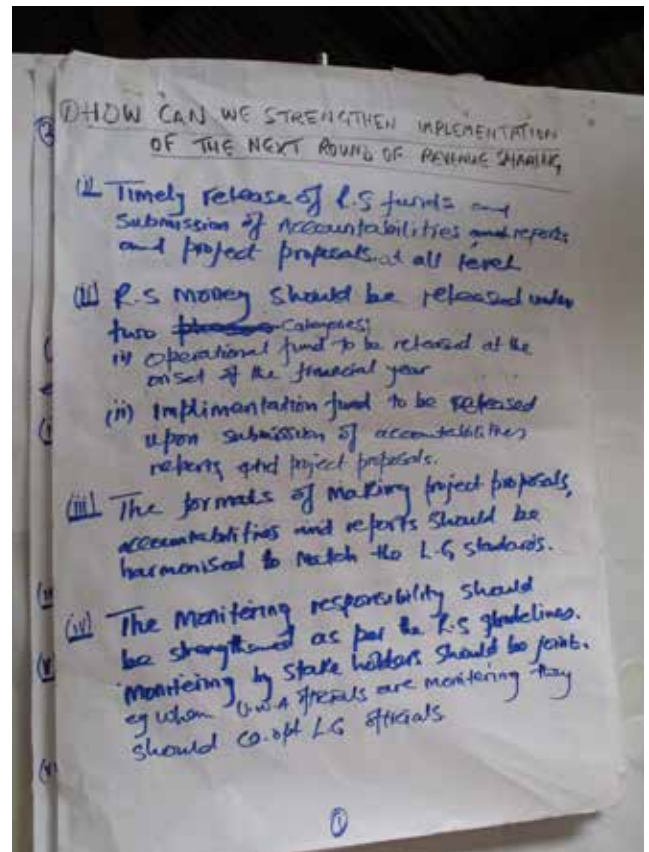 ① HOW CAN WE STRENGTHEN IMPLEMENTATION
OF THE NEXT ROUND OF REVENUE SHARING
(i) Timely release of R.S funds and
submission of Accountabilities and reports
and project proposals at all level
(ii) R.S money should be released under
two categories;
(i) Operational fund to be released at the
onset of the financial year
(ii) Implimentation fund to be released
upon submission of accountabilities
reports and project proposals.
(iii) The formats of making project proposals,
accountabilities and reports should be
harmonised to match the L.G standards.
(iv) The monitering responsibility should
be strengthened as per the R.S guidelines.
monitering by stake holders should be joint.
eg when U.W.A officials are monitering they
should co-opt LG officials
①